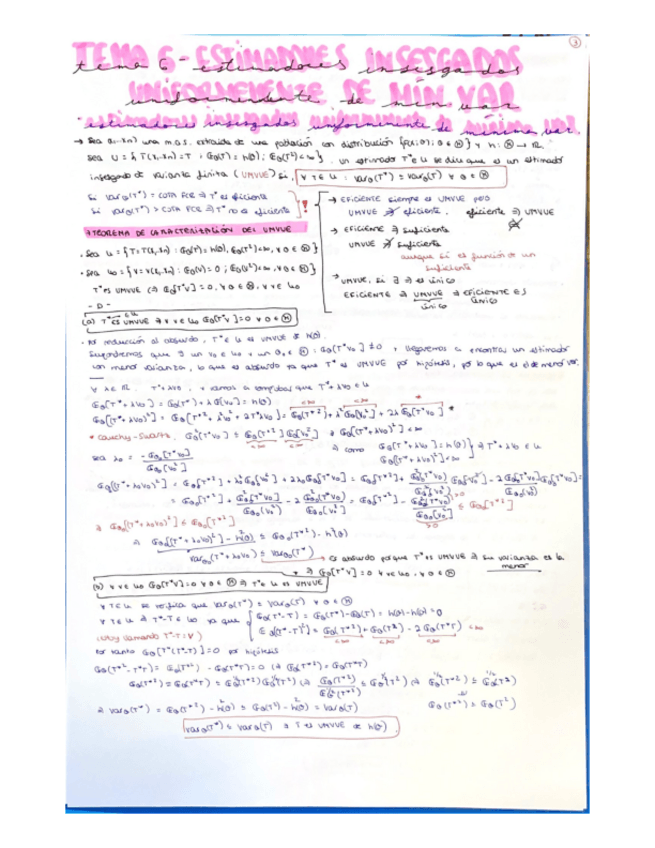 3
TEMA 6 - ESTIMADORES INSESGADOS
UNIFORMEMENTE DE MIN VAR
estimadores insesgados uniformemente de mínima var.
→ Sea una m.a.s. extraída de una población con distribución {P(x;θ); θ∈Θ} y h: Θ → R.
Sea U = { T(x₁...xn) = T : Eθ(T) = h(θ); Eθ(T²) < ∞}. Un estimador T*∈U se dice que es un estimador
insesgado de varianza (UMVUE) si, ∀T∈U : Varθ(T*) ≤ Varθ(T) ∀θ∈Θ
Si Varθ(T*) = COTA FCR ⇒ T* es eficiente
Si Varθ(T*) > COTA FCR ⇒ T* no es eficiente
!
→ EFICIENTE siempre es UMVUE pero
UMVUE ⇏ eficiente. eficiente ⇒ UMVUE
→ EFICIENTE ⇒ suficiente
UMVUE ⇏ suficiente
aunque sí es función de un
suficiente
→ UMVUE, si ∃ ⇒ es único
EFICIENTE ⇒ UMVUE ⇒ EFICIENTE ES
único ÚNICO
TEOREMA DE CARACTERIZACIÓN DEL UMVUE
· Sea U = {T = T(x₁...xn) : Eθ(T) = h(θ), Eθ(T²) < ∞, ∀θ∈Θ}
· Sea U₀ = {V = V(x₁...xn) : Eθ(V) = 0 ; Eθ(V²) < ∞, ∀θ∈Θ}
T* es UMVUE ⇔ Eθ[T*V] = 0, ∀θ∈Θ, ∀V∈U₀
- D -
(a) T*∈U es UMVUE ⇒ ∀V∈U₀ Eθ[T*V] = 0 ∀θ∈Θ
· Por reducción al absurdo, T*∈U es UMVUE de h(θ).
Supondremos que ∃ un V₀∈U₀ y un θ₀∈Θ : Eθ₀[T*V₀] ≠ 0 y llegaremos a encontrar un estimador
con menor varianza, lo que es absurdo ya que T* es UMVUE por hipótesis, por lo que es el de menor var.
∀λ∈R. T*+λV₀, y vamos a comprobar que T*+λV₀∈U
Eθ(T*+λV₀) = Eθ(T*) + λEθ(V₀) = h(θ)
Eθ[(T*+λV₀)²] = Eθ[T*² + λ²V₀² + 2T*λV₀] = Eθ[T*²] + λ²Eθ[V₀²] + 2λEθ[T*V₀] *
* Cauchy-Swartz. Eθ²[T*V₀] ≤ Eθ[T*²]Eθ[V₀²] ⇒ Eθ[(T*+λV₀)²] < ∞
⇒ como Eθ[T*+λV₀] = h(θ) Eθ[(T*+λV₀)²] < ∞ } ⇒ T*+λV₀∈U
sea λ₀ = -Eθ₀[T*V₀] / Eθ₀[V₀²]
Eθ₀[(T*+λ₀V₀)²] = Eθ₀[T*²] + λ₀²Eθ₀[V₀²] + 2λ₀Eθ₀[T*V₀] =
⇒ Eθ₀[(T*+λ₀V₀)²] ≤ Eθ₀[T*²]
⇒ Eθ₀[(T*+λ₀V₀)²] - h²(θ) ≤ Eθ₀(T*²) - h²(θ)
Varθ₀(T*+λ₀V₀) ≤ Varθ₀(T*) → Es absurdo porque T* es UMVUE ⇒ su varianza es la
menor
⇒ Eθ[T*V] = 0 ∀V∈U₀, ∀θ∈Θ
(b) ∀V∈U₀ Eθ[T*V] = 0 ∀θ∈Θ ⇒ T*∈U es UMVUE
∀T∈U se verifica que Varθ(T*) ≤ Varθ(T) ∀θ∈Θ
∀T∈U ⇒ T*-T∈U₀ ya que { Eθ(T*-T) = Eθ(T*) - Eθ(T) = h(θ) - h(θ) = 0
Eθ[(T*-T)²] = Eθ(T*²) + Eθ(T²) - 2Eθ(T*T) < ∞
(estoy llamando T*-T = V)
Por tanto Eθ[T*(T*-T)] = 0 por hipótesis
Eθ(T*²-T*T) = Eθ(T*²) - Eθ(T*T) = 0 ⇔ Eθ(T*²) = Eθ(T*T)
⇒ Varθ(T*) = Eθ(T*²) - h²(θ) ≤ Eθ(T²) - h²(θ) = Varθ(T)
Eθ(T*²) ≤ Eθ(T²)
Varθ(T*) ≤ Varθ(T) ⇒ T es UMVUE de h(θ)